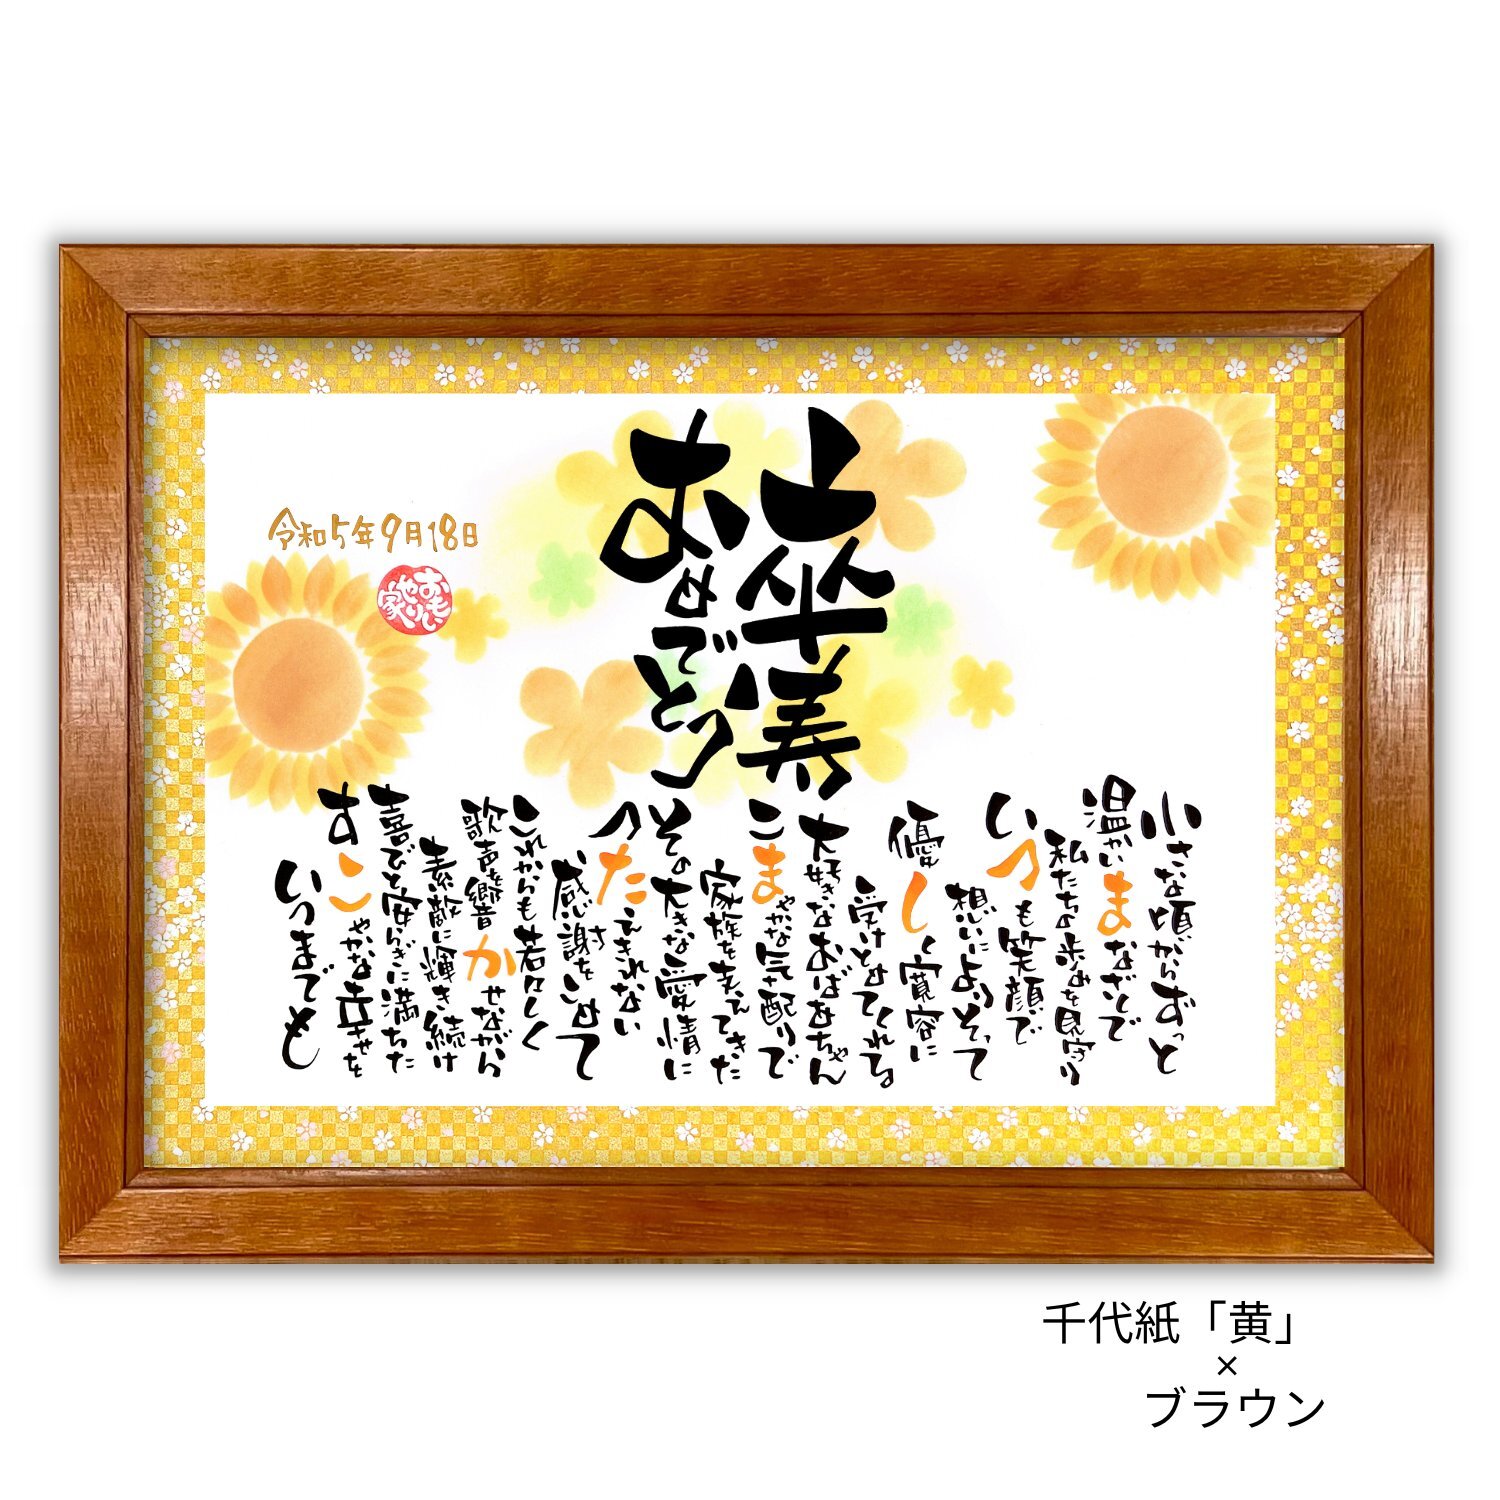 卒寿
おめでとう
令和5年9月18日
おもいやりや家
小さな頃からずっと
温かいまなざしで
私たちの歩みを見守り
いつも笑顔で
想いによりそって
優しく寛容に
受けとめてくれる
大好きなおばあちゃん
こまやかな気配りで
家族を支えてきた
その大きな愛情に
つたえきれない
感謝をこめて
これからも若々しく
歌声を響かせながら
素敵に輝き続け
喜びと安らぎに満ちた
すこやかな幸せを
いつまでも
千代紙「黄」
×
ブラウン